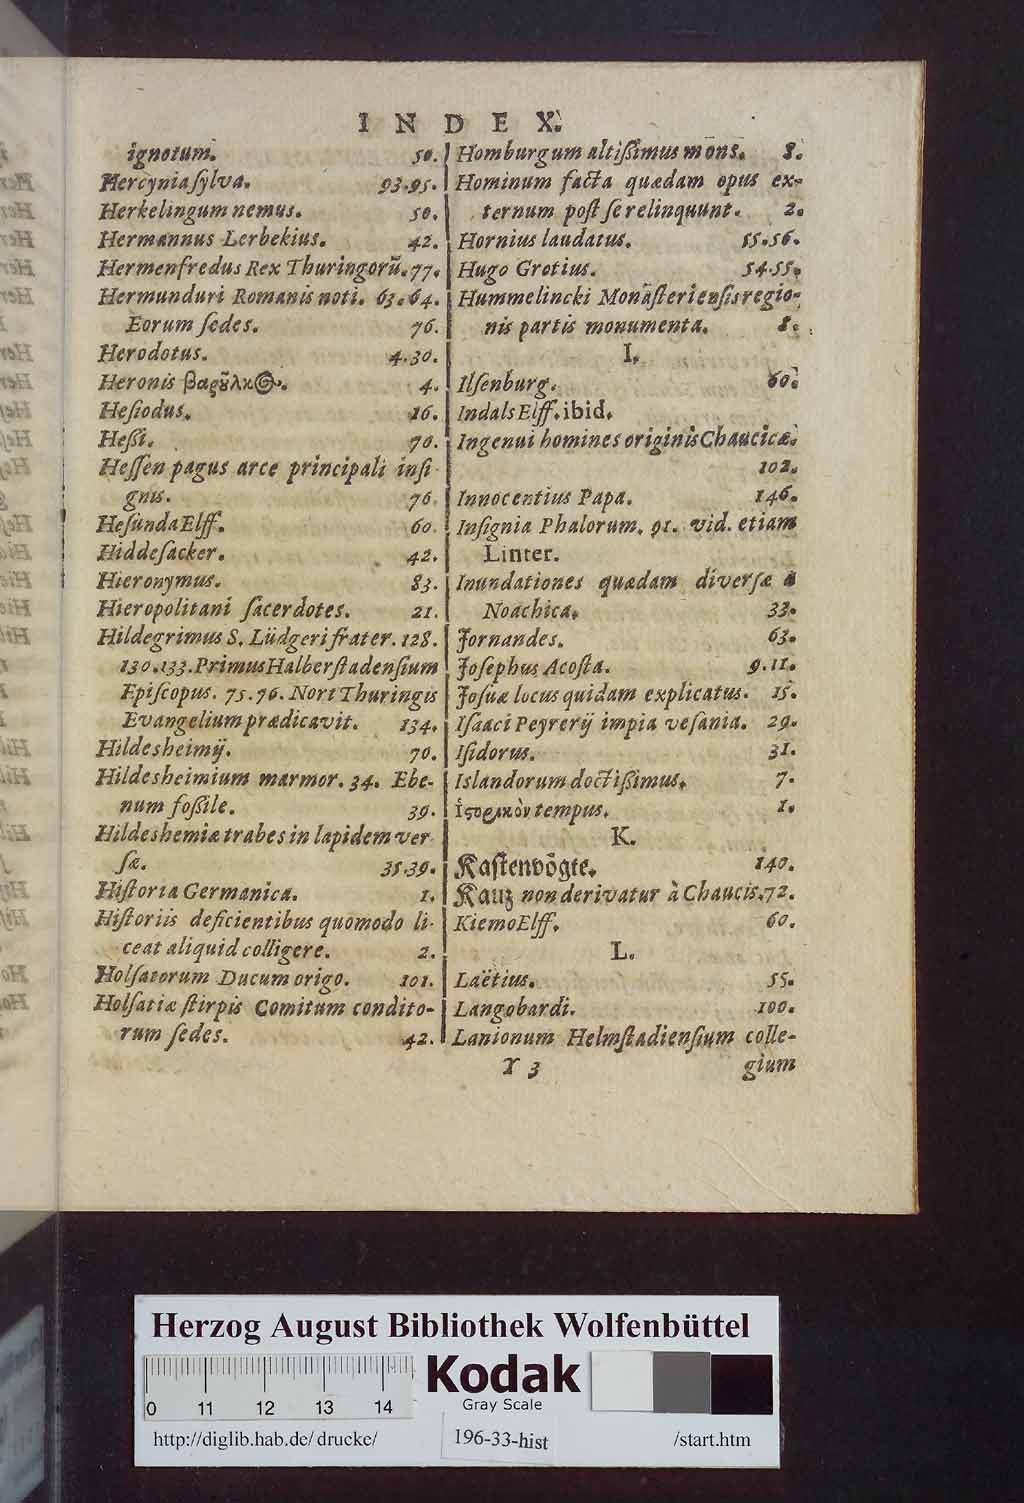 INDEX.
ignotum. 50.
Hercynia sylva. 93.95.
Herkelingum nemus. 50.
Hermannus Lerbekius. 42.
Hermenfredus Rex Thuringorũ. 77.
Hermunduri Romanis noti. 63.64.
Eorum ſedes. 76.
Herodotus. 4.30.
Heronis 4.
Heſiodus. 16.
Heßi. 70.
Heſſen pagus arce principali inſi-
gnis. 76.
Heſunda Elff. 60.
Hiddeſacker. 42.
Hieronymus. 83.
Hieropolitani ſacerdotes. 21.
Hildegrimus S. Lüdgeri frater. 128.
130.133. Primus Halberſtadenſium
Epiſcopus. 75.76. Nort Thuringis
Evangelium prædicavit. 134.
Hildesheimÿ. 70.
Hildesheimium marmor. 34. Ebe-
num foßile. 39.
Hildeshemiæ trabes in lapidem ver-
ſæ. 35.39.
Hiſtoria Germanica. 1.
Hiſtoriis deficientibus quomodo li-
ceat aliquid colligere. 2.
Holſatorum Ducum origo. 101.
Holſatiæ ſtirpis Comitum condito-
rum ſedes. 42.
Homburgum altißimus mons. 8.
Hominum facta quædam opus ex-
ternum poſt ſe relinquunt. 2.
Hornius laudatus. 55.56.
Hugo Grotius. 54.55.
Hummelincki Monaſterienſis regio-
nis partis monumenta. 8.
I.
Ilſenburg. 60.
Indals Elff. ibid.
Ingenui homines originis Chaucicæ.
102.
Innocentius Papa. 146.
Inſignia Phalorum. 91. vid. etiam
Linter.
Inundationes quædam diverſæ a
Noachica. 33.
Jornandes. 63.
Joſephus Acoſta. 9.11.
Joſuæ locus quidam explicatus. 15.
Iſaaci Peyrerÿ impia veſania. 29.
Iſidorus. 31.
Islandorum doctißimus. 7.
ἱςορικὸν tempus. 1.
K.
Kaſtenvögte. 140.
Kauz non derivatur à Chaucis. 72.
Kiemo Elff. 60.
L.
Laëtius. 55.
Langobardi. 100.
Lanionum Helmſtadienſium colle-
Y 3 gium
Herzog August Bibliothek Wolfenbüttel
Kodak
Gray Scale
0 11 12 13 14
http://diglib.hab.de/ drucke/ 196-33-hist /start.htm